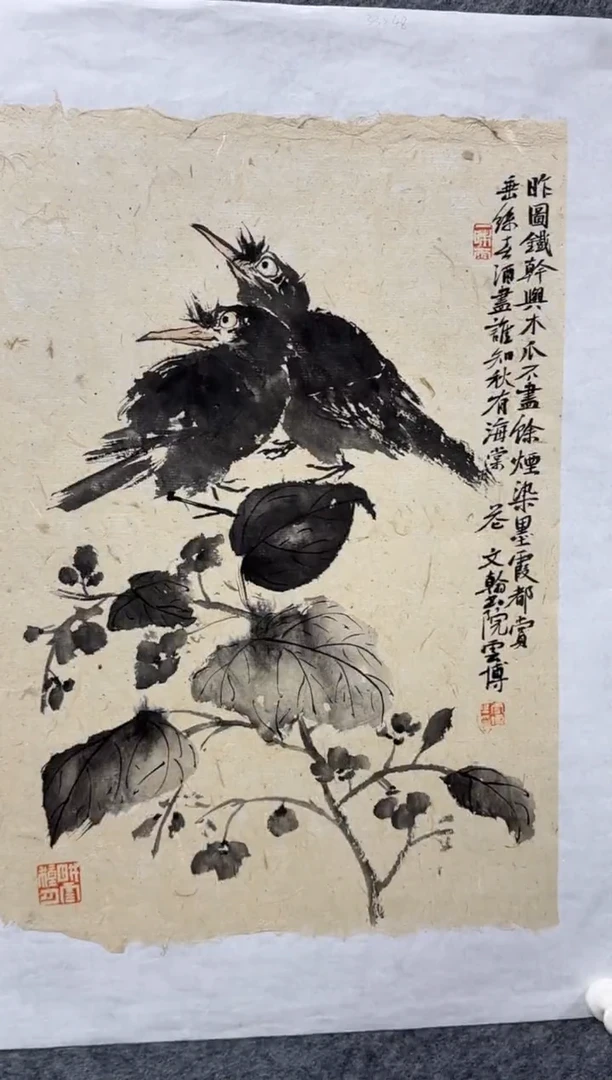 昨圖鐵幹與木瓜不盡餘煙染墨霞都賞
垂絲春酒盡誰知秋有海棠花 文翰書院雲博